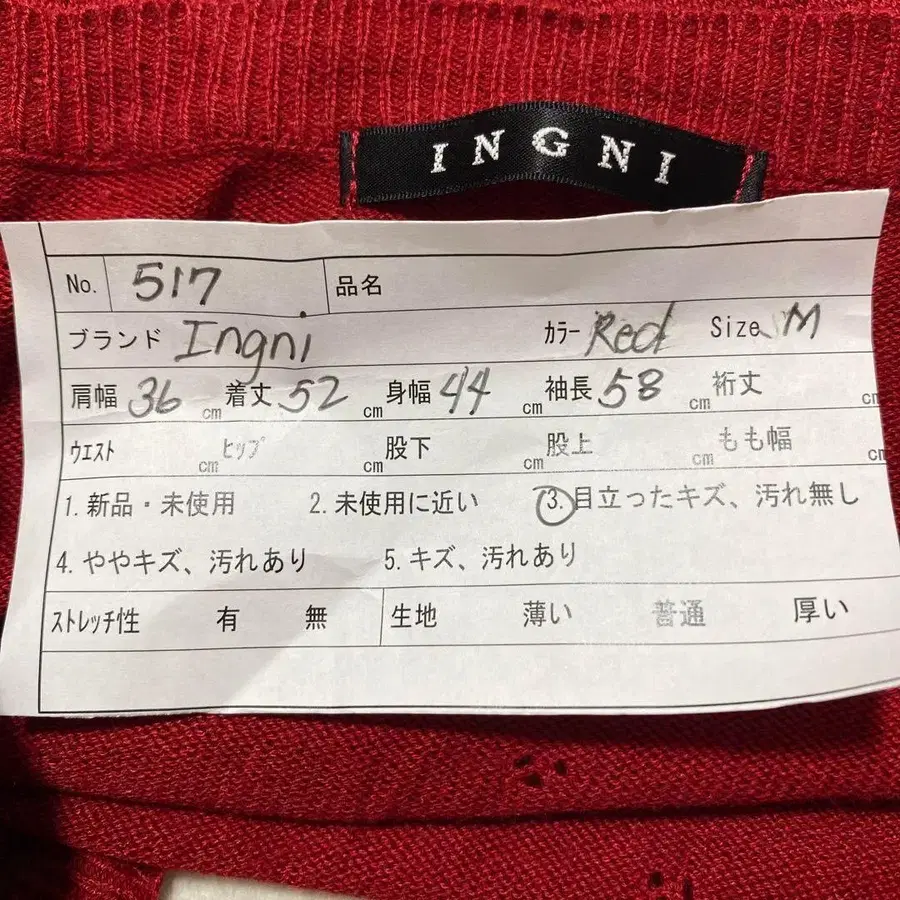 INGNI
No. 517 品名
ブランド Ingni カラー Red Size M
肩幅 36 cm 着丈 52 cm 身幅 44 cm 袖長 58 cm 裄丈 cm
ウエスト cm ヒップ cm 股下 cm 股上 cm もも幅 cm
1. 新品・未使用 2. 未使用に近い 3. 目立ったキズ、汚れ無し
4. ややキズ、汚れあり 5. キズ、汚れあり
ストレッチ性 有 無 生地 薄い 普通 厚い